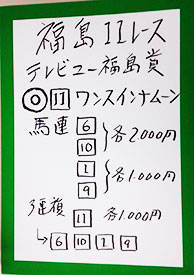 福島11レース
テレビュー福島賞
◎ 11 ワンスインナムーン
馬連 6
10
各2,000円
1
9
各1,000円
3連複 11 各1,000円
↳ 6 10 1 9